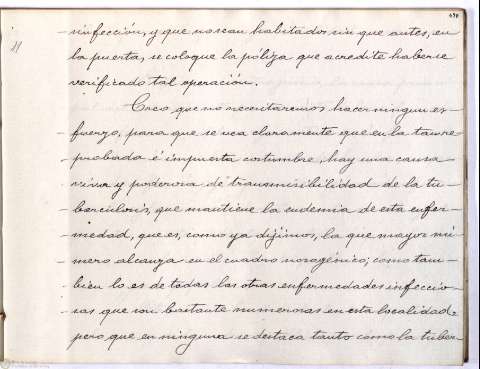 sinfección, y que no sean habitados sin que antes, en
la puerta, se coloque la póliza que acredite haberse
verificado tal operación.
Creo que no necesitaremos hacer ningun es-
fuerzo, para que se vea claramente que en la tan re-
probada é impuesta costumbre, hay una causa
viva y poderosa de transmisibilidad de la tu-
berculosis, que mantiene la endemia de esta enfer-
medad, que es, como ya dijimos, la que mayor nú-
mero alcanza en el cuadro nosogénico; como tam-
bien lo es de todas las otras enfermedades infeccio-
sas que son bastante numerosas en esta localidad,
pero que en ninguna se destaca tanto como la tuber-